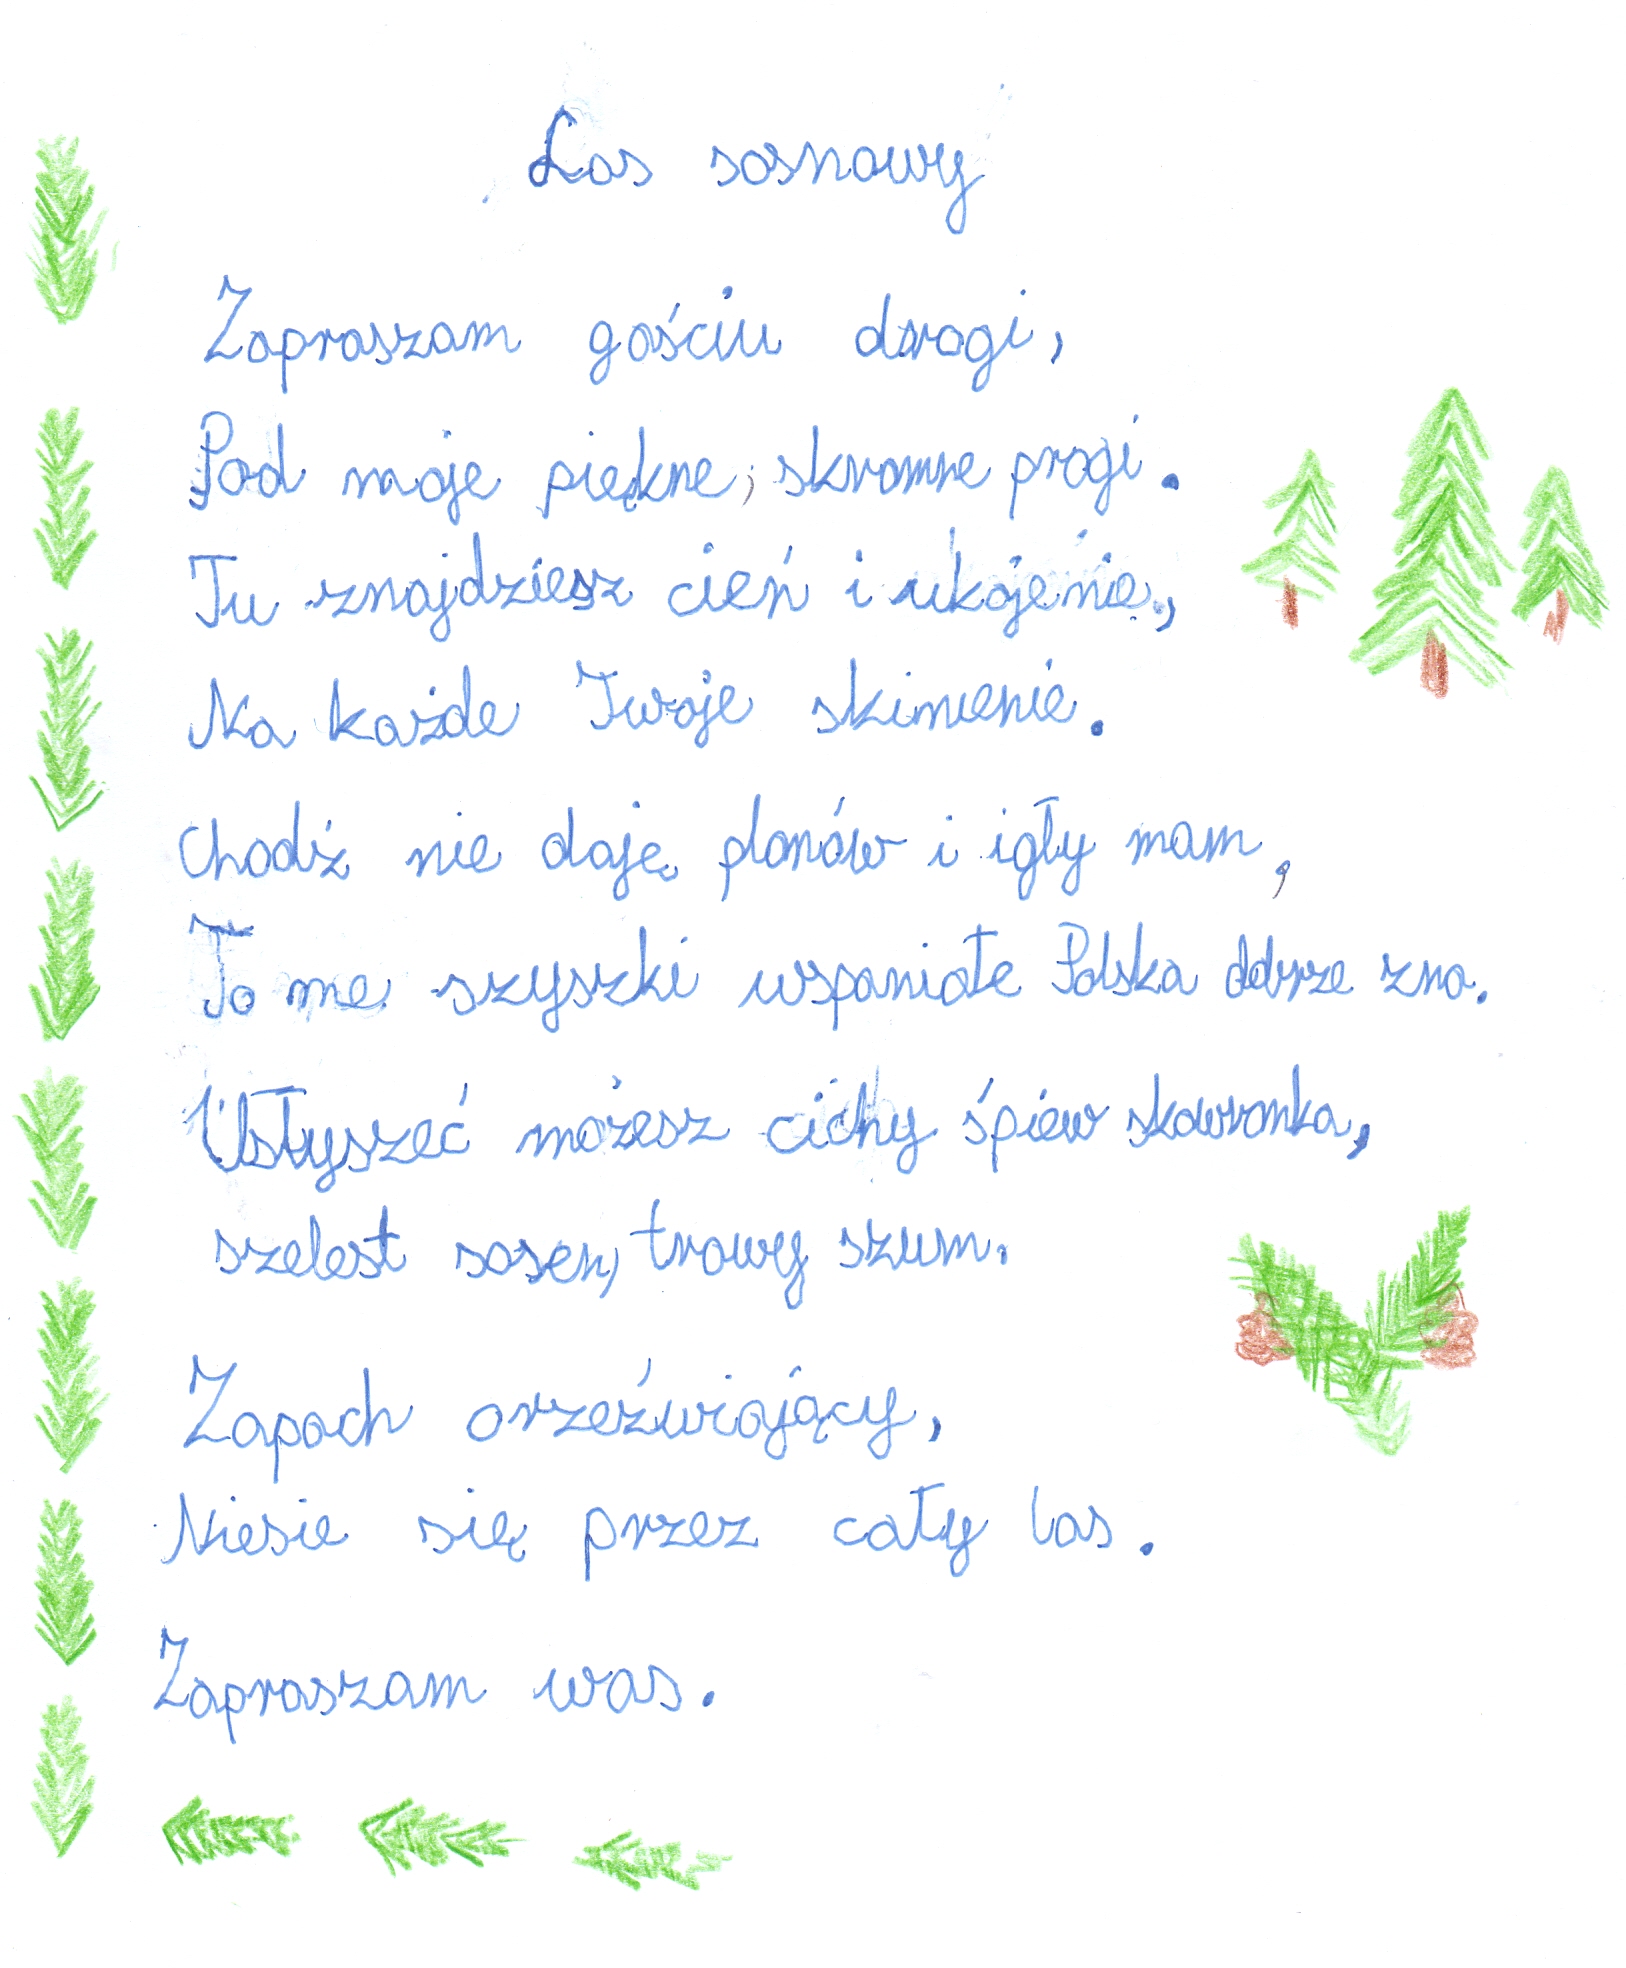 Las sosnowy
Zapraszam gościu drogi,
Pod moje piękne, skromne progi.
Tu znajdziesz cień i ukojenie,
Na każde Twoje skinienie.
Chodź nie daję plonów i igły mam,
To me szyszki wspaniałe Polska dobrze zna.
Usłyszeć możesz cichy śpiew skowronka,
szelest sosen, trawy szum.
Zapach orzeźwiający,
Niesie się przez cały las.
Zapraszam was.